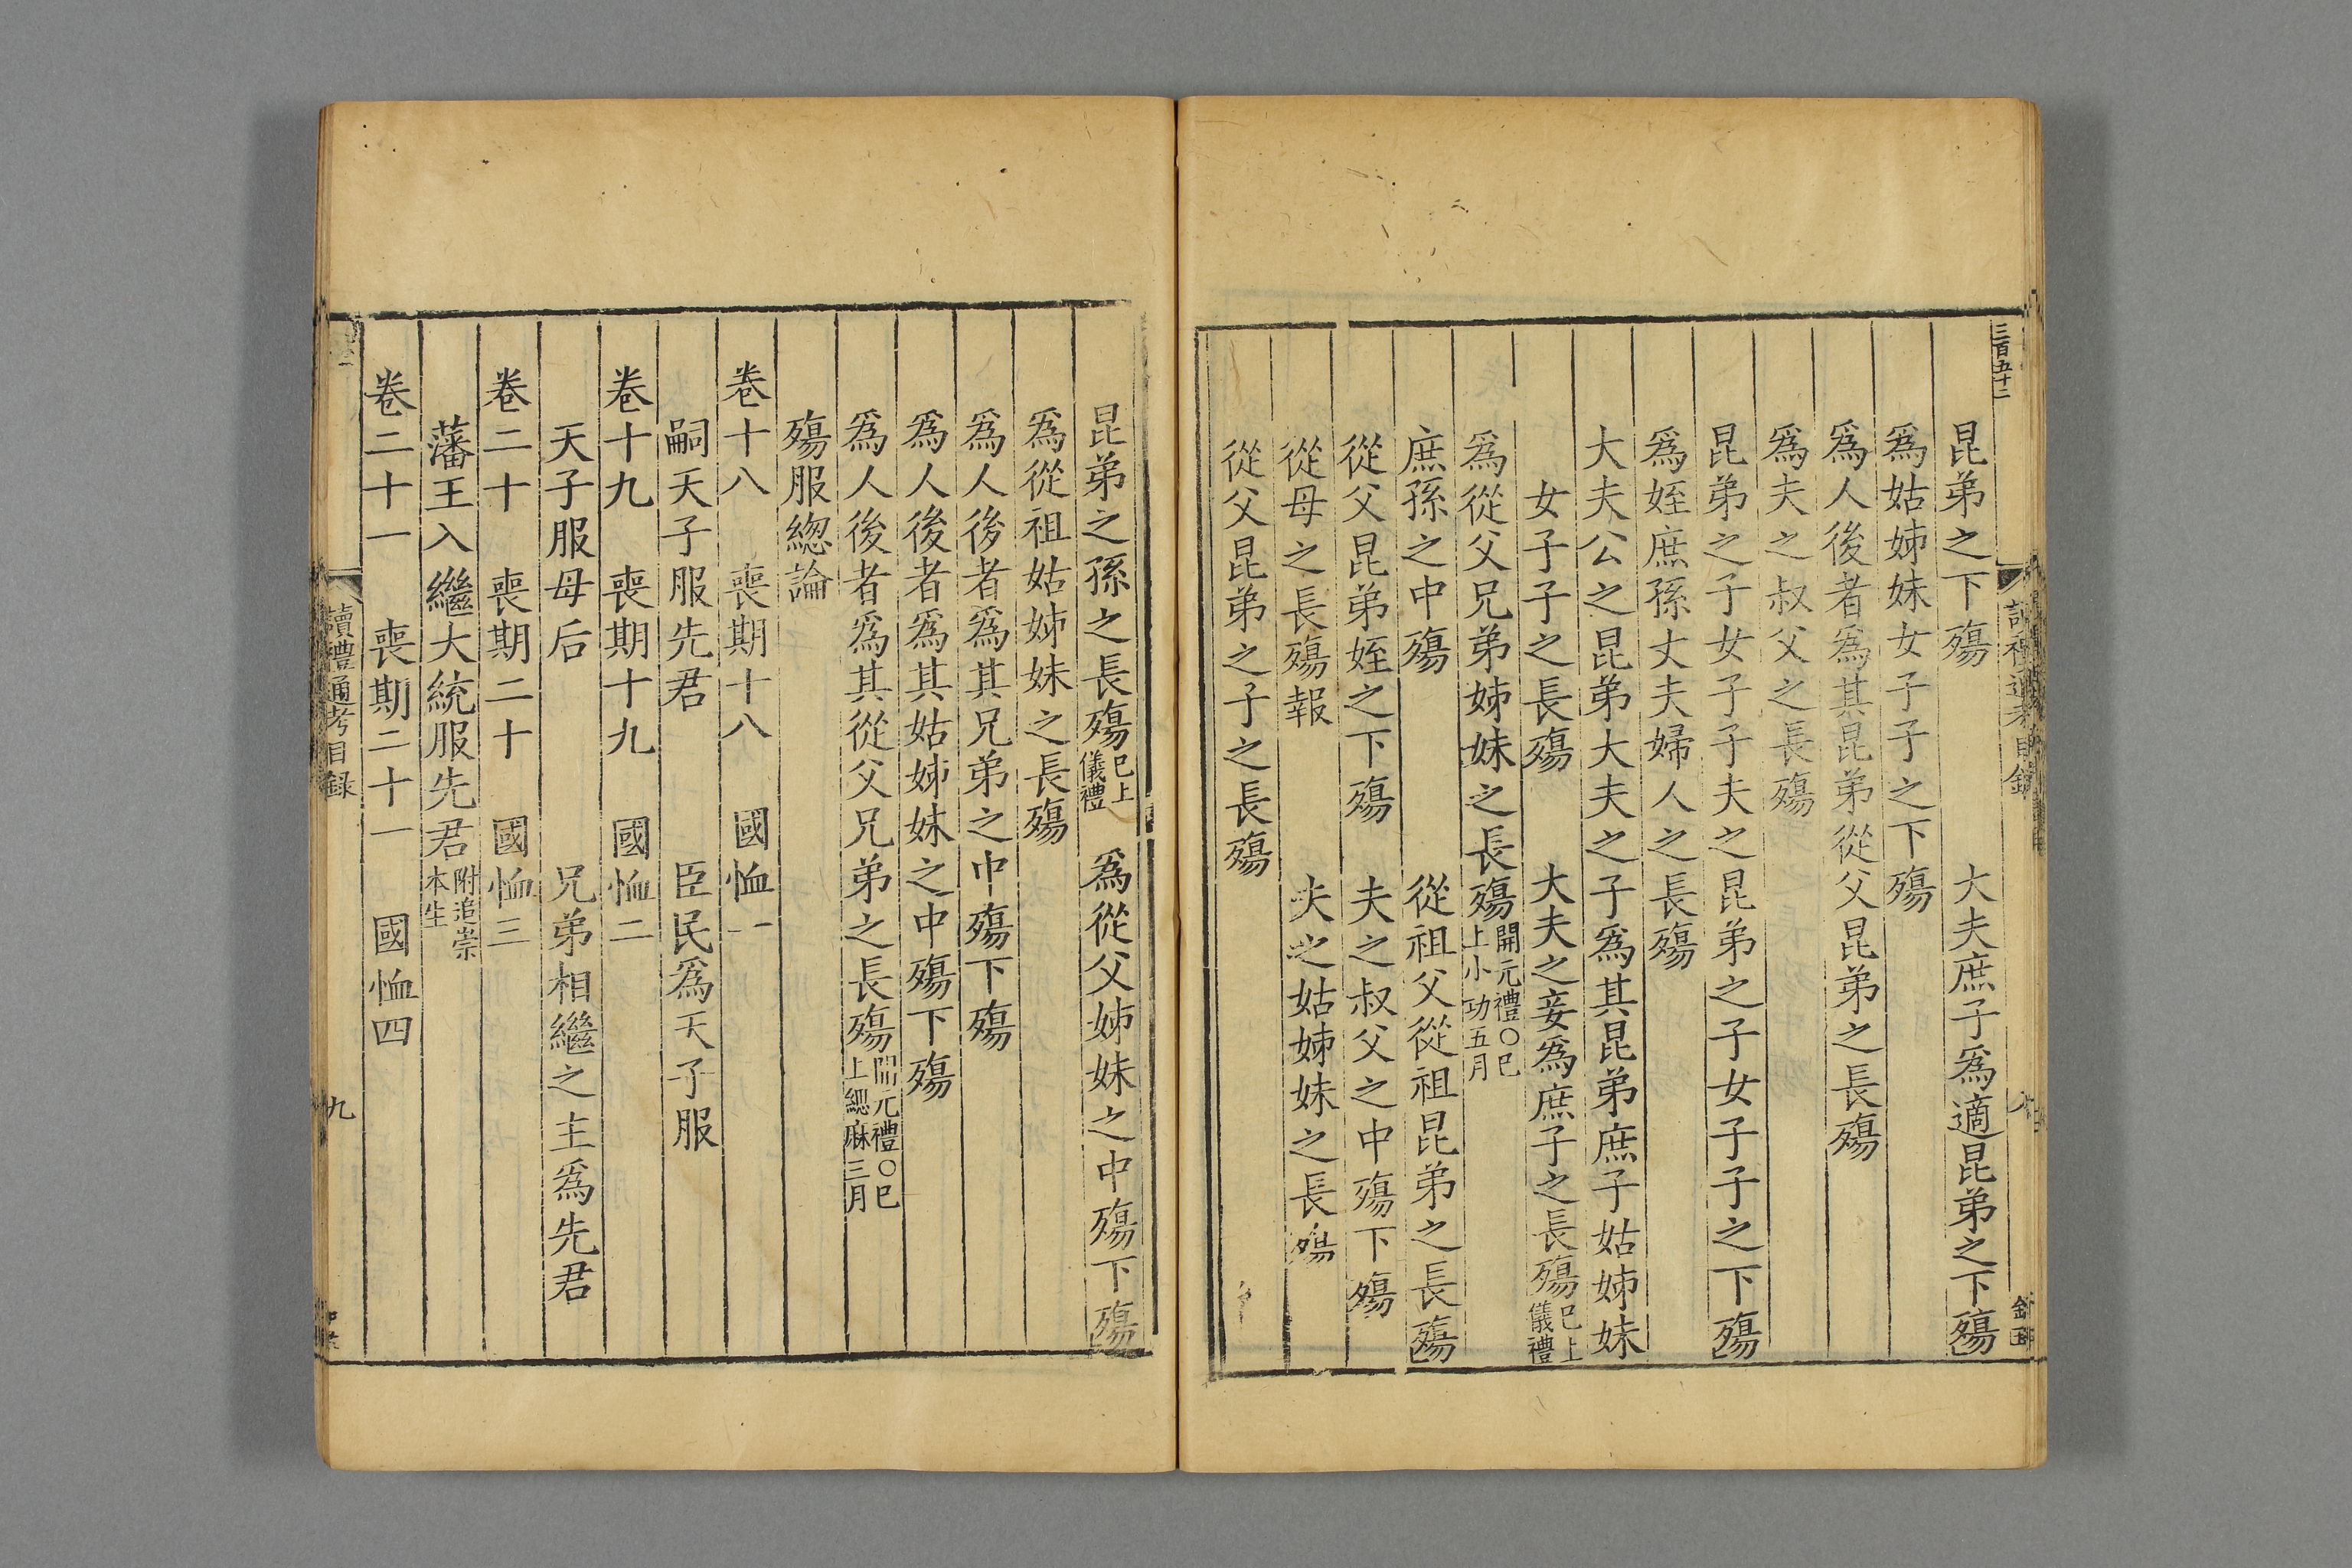 三百五十二
昆弟之下殤　大夫庶子爲適昆弟之下殤
爲姑姊妹女子子之下殤
爲人後者爲其昆弟從父昆弟之長殤
爲夫之叔父之長殤
昆弟之子女子子夫之昆弟之子女子子之下殤
爲姪庶孫丈夫婦人之長殤
大夫公之昆弟大夫之子爲其昆弟庶子姑姊妹
女子子之長殤　大夫之妾爲庶子之長殤巳上儀禮
爲從父兄弟姊妹之長殤開元禮○巳上小功五月
庶孫之中殤　從祖父從祖昆弟之長殤
從父昆弟姪之下殤　夫之叔父之中殤下殤
從母之長殤報　夫之姑姊妹之長殤
從父昆弟之子之長殤
昆弟之孫之長殤巳上儀禮　爲從父姊妹之中殤下殤
爲從祖姑姊妹之長殤
爲人後者爲其兄弟之中殤下殤
爲人後者爲其姑姊妹之中殤下殤
爲人後者爲其從父兄弟之長殤開元禮○巳上緦麻三月
殤服總論
卷十八　喪期十八　國恤一
嗣天子服先君　臣民爲天子服
卷十九　喪期十九　國恤二
天子服母后　兄弟相繼之主爲先君
卷二十　喪期二十　國恤三
藩王入繼大統服先君附追崇本生
卷二十一　喪期二十一　國恤四
讀禮通考目録
九